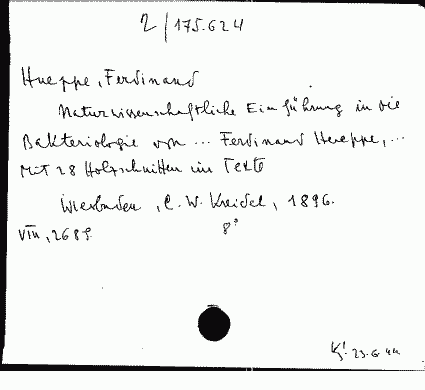 2/175.624
Hueppe, Ferdinand
Naturwissenschaftliche Einführung in die
Bakteriologie von ... Ferdinand Hueppe, ...
Mit 28 Holzschnitten im Texte
Wiesbaden, C. W. Kreidel, 1896.
VIII, 268 S. 8°
23.6.44